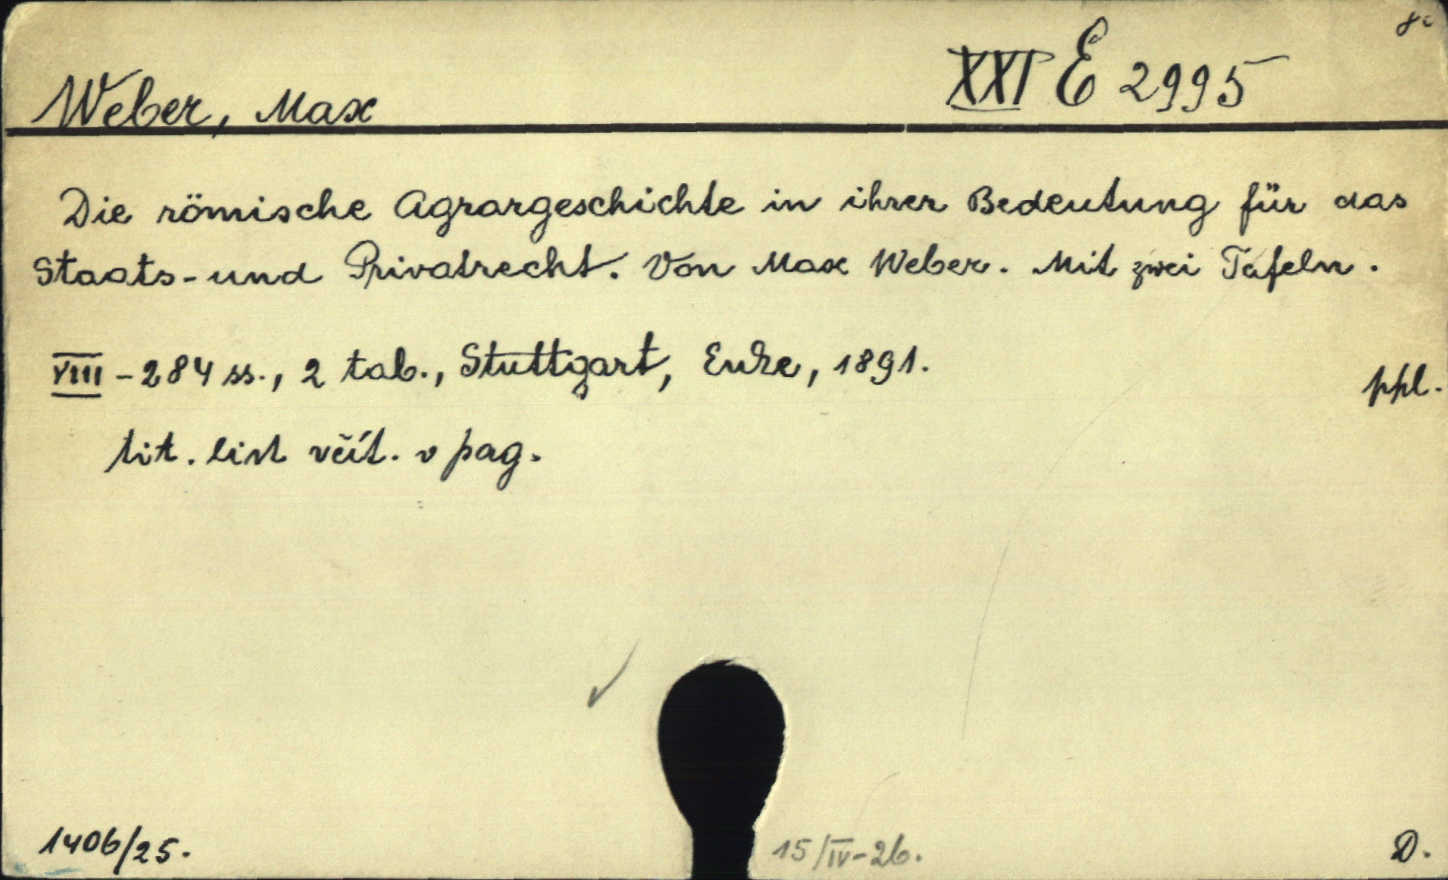 8°
XXI E 2995
Weber, Max
Die römische Agrargeschichte in ihrer Bedeutung für das
Staats- und Privatrecht. Von Max Weber. Mit zwei Tafeln.
VIII - 284 ss., 2 tab., Stuttgart, Enke, 1891.
ppl.
tit. list včít. v pag.
1406/25.
15/IV-26.
D.